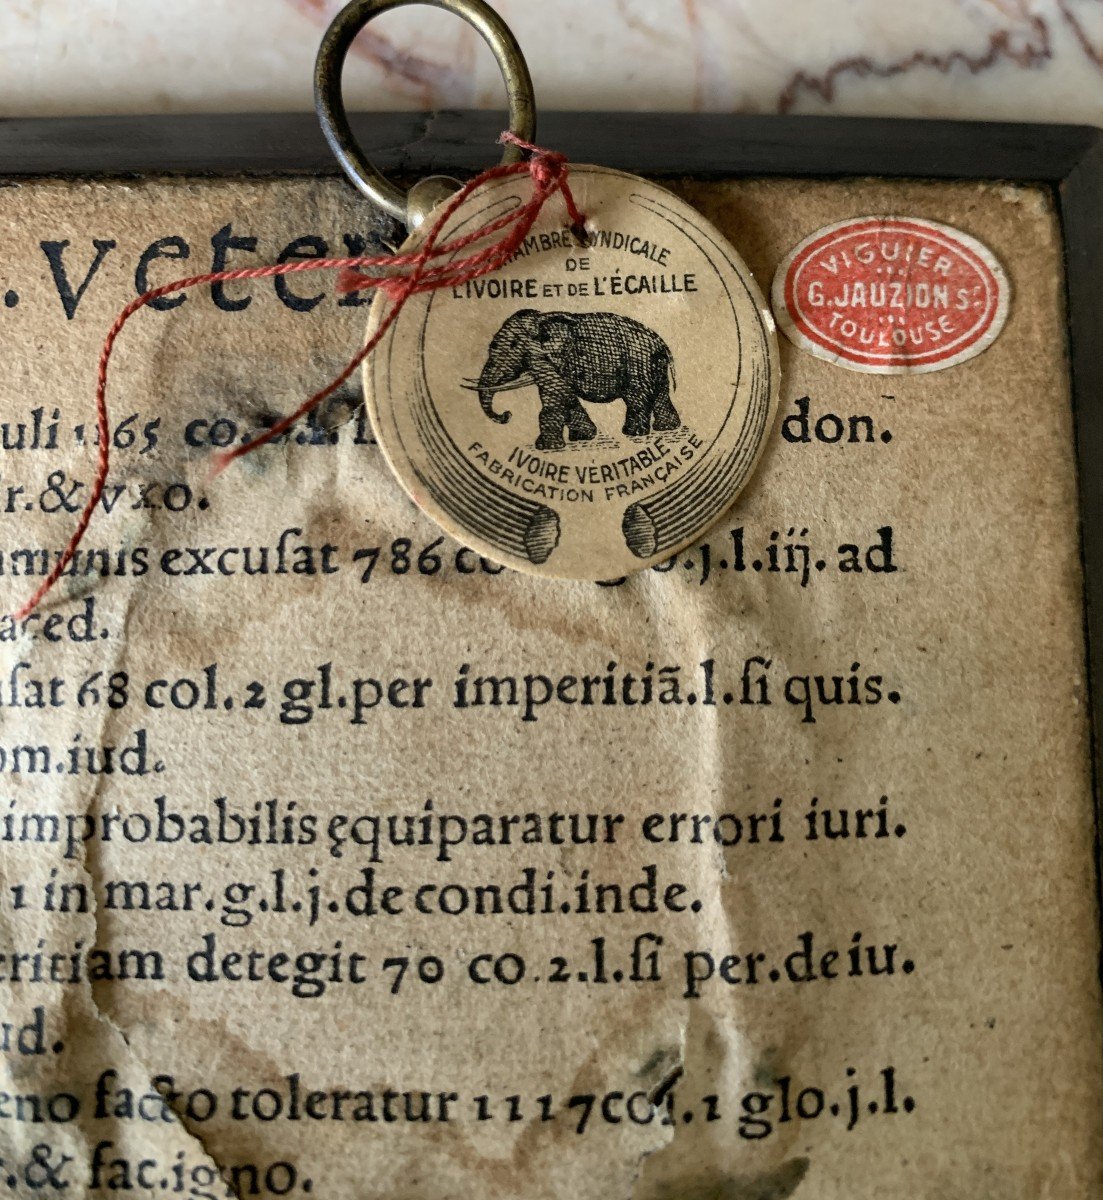 .veter
CHAMBRE SYNDICALE
DE
L'IVOIRE ET DE L'ÉCAILLE
IVOIRE VÉRITABLE
FABRICATION FRANÇAISE
VIGUIER
G. JAUZION Sʳ
TOULOUSE
uli 1165 co. don.
r.&vxo.
munis excuſat 786 co .j.l.iij. ad
aced.
ſat 68 col.2 gl.per imperitiã.l.ſi quis.
om.iud.
improbabilis ęquiparatur errori iuri.
1 in mar.g.l.j.de condi.inde.
eritiam detegit 70 co.2.l.ſi per.de iu.
ud.
eno facto toleratur 1117col.1 glo.j.l.
r.& fac.igno.